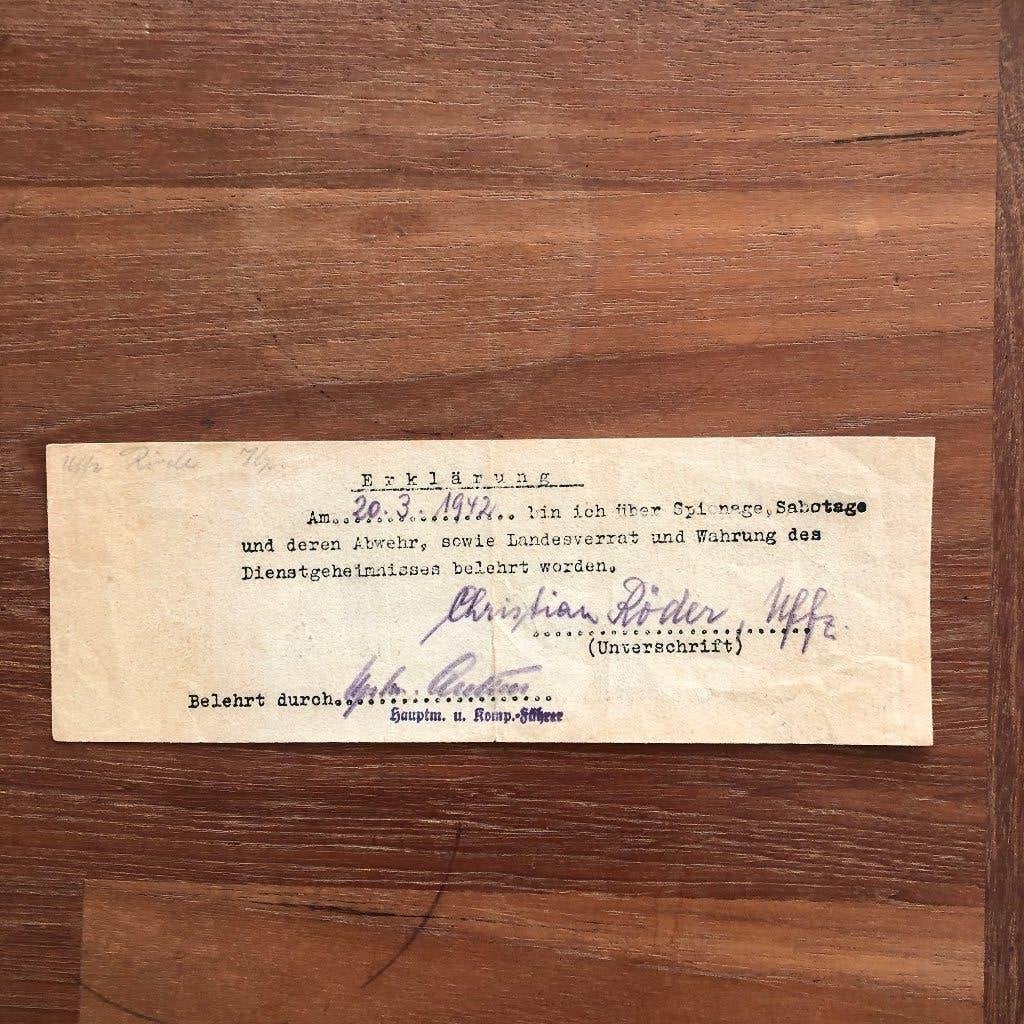 Uffz Röder
Erklärung
Am..20.3.1942.. bin ich über Spionage, Sabotage
und deren Abwehr, sowie Landesverrat und Wahrung des
Dienstgeheimnisses belehrt worden.
Christian Röder, Uffz.
(Unterschrift)
Belehrt durch
Hauptm. u. Komp.-Führer